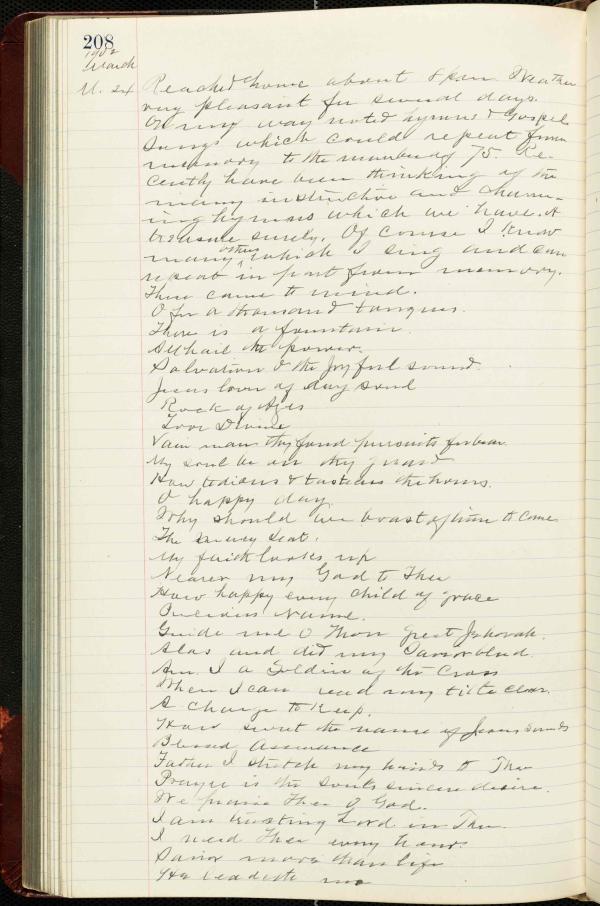 208
1902
March
M. 24 Reached home about 8 pm Weather
very pleasant for several days.
On my way noted hymns & Gospel
Songs which could repeat from
memory to the number of 75. Re-
cently have been thinking of the
many instructive and charm-
ing hymns which we have. A
treasure surely. Of course I know
many others which I sing and can
repeat in part from memory.
These came to mind.
O for a thousand tongues.
There is a fountain.
All hail the power.
Salvation O the Joyful sound.
Jesus lover of my soul
Rock of Ages
Love Divine
Vain man thy fond pursuits forbear.
My soul be on thy guard
How tedious & tasteless the hours.
O happy day
Why should we boast of time to come
The mercy seat.
My faith looks up
Nearer my God to Thee
How happy every child of grace
Precious Name.
Guide me O Thou great Jehovah.
Alas and did my Savior bleed.
Am I a Soldier of the Cross
When I can read my title clear.
A Charge to Keep.
How sweet the name of Jesus sounds
Blessed Assurance
Father I stretch my hands to Thee
Prayer is the souls sincere desire.
We praise Thee O God.
I am trusting Lord in Thee
I need Thee every hour
Savior more than life
He leadeth me